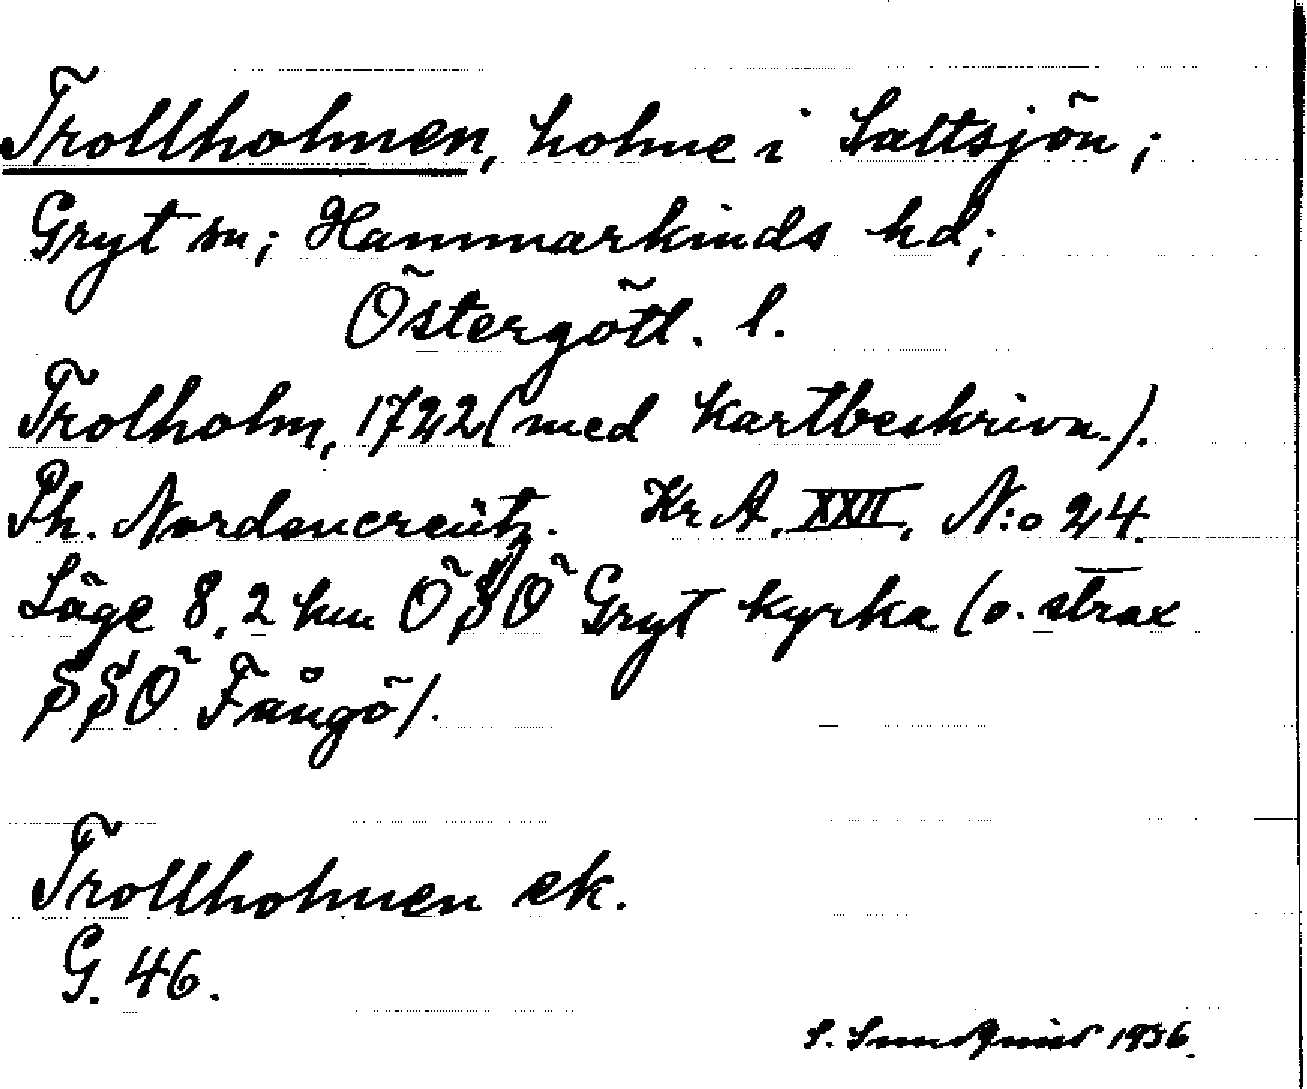 Trollholmen, holme i Saltsjön;
Gryt sn; Hammarkinds hd;
Östergötl. l.
Trolholm, 1722 (med kartbeskrivn.).
Ph. Nordencreütz. Kr A. XXVII, N:o 24.
Läge 8,2 km ÖSÖ Gryt kyrka (o. strax
SSÖ Fångö).
Trollholmen ek.
G. 46.
S. Sundquist 1936.